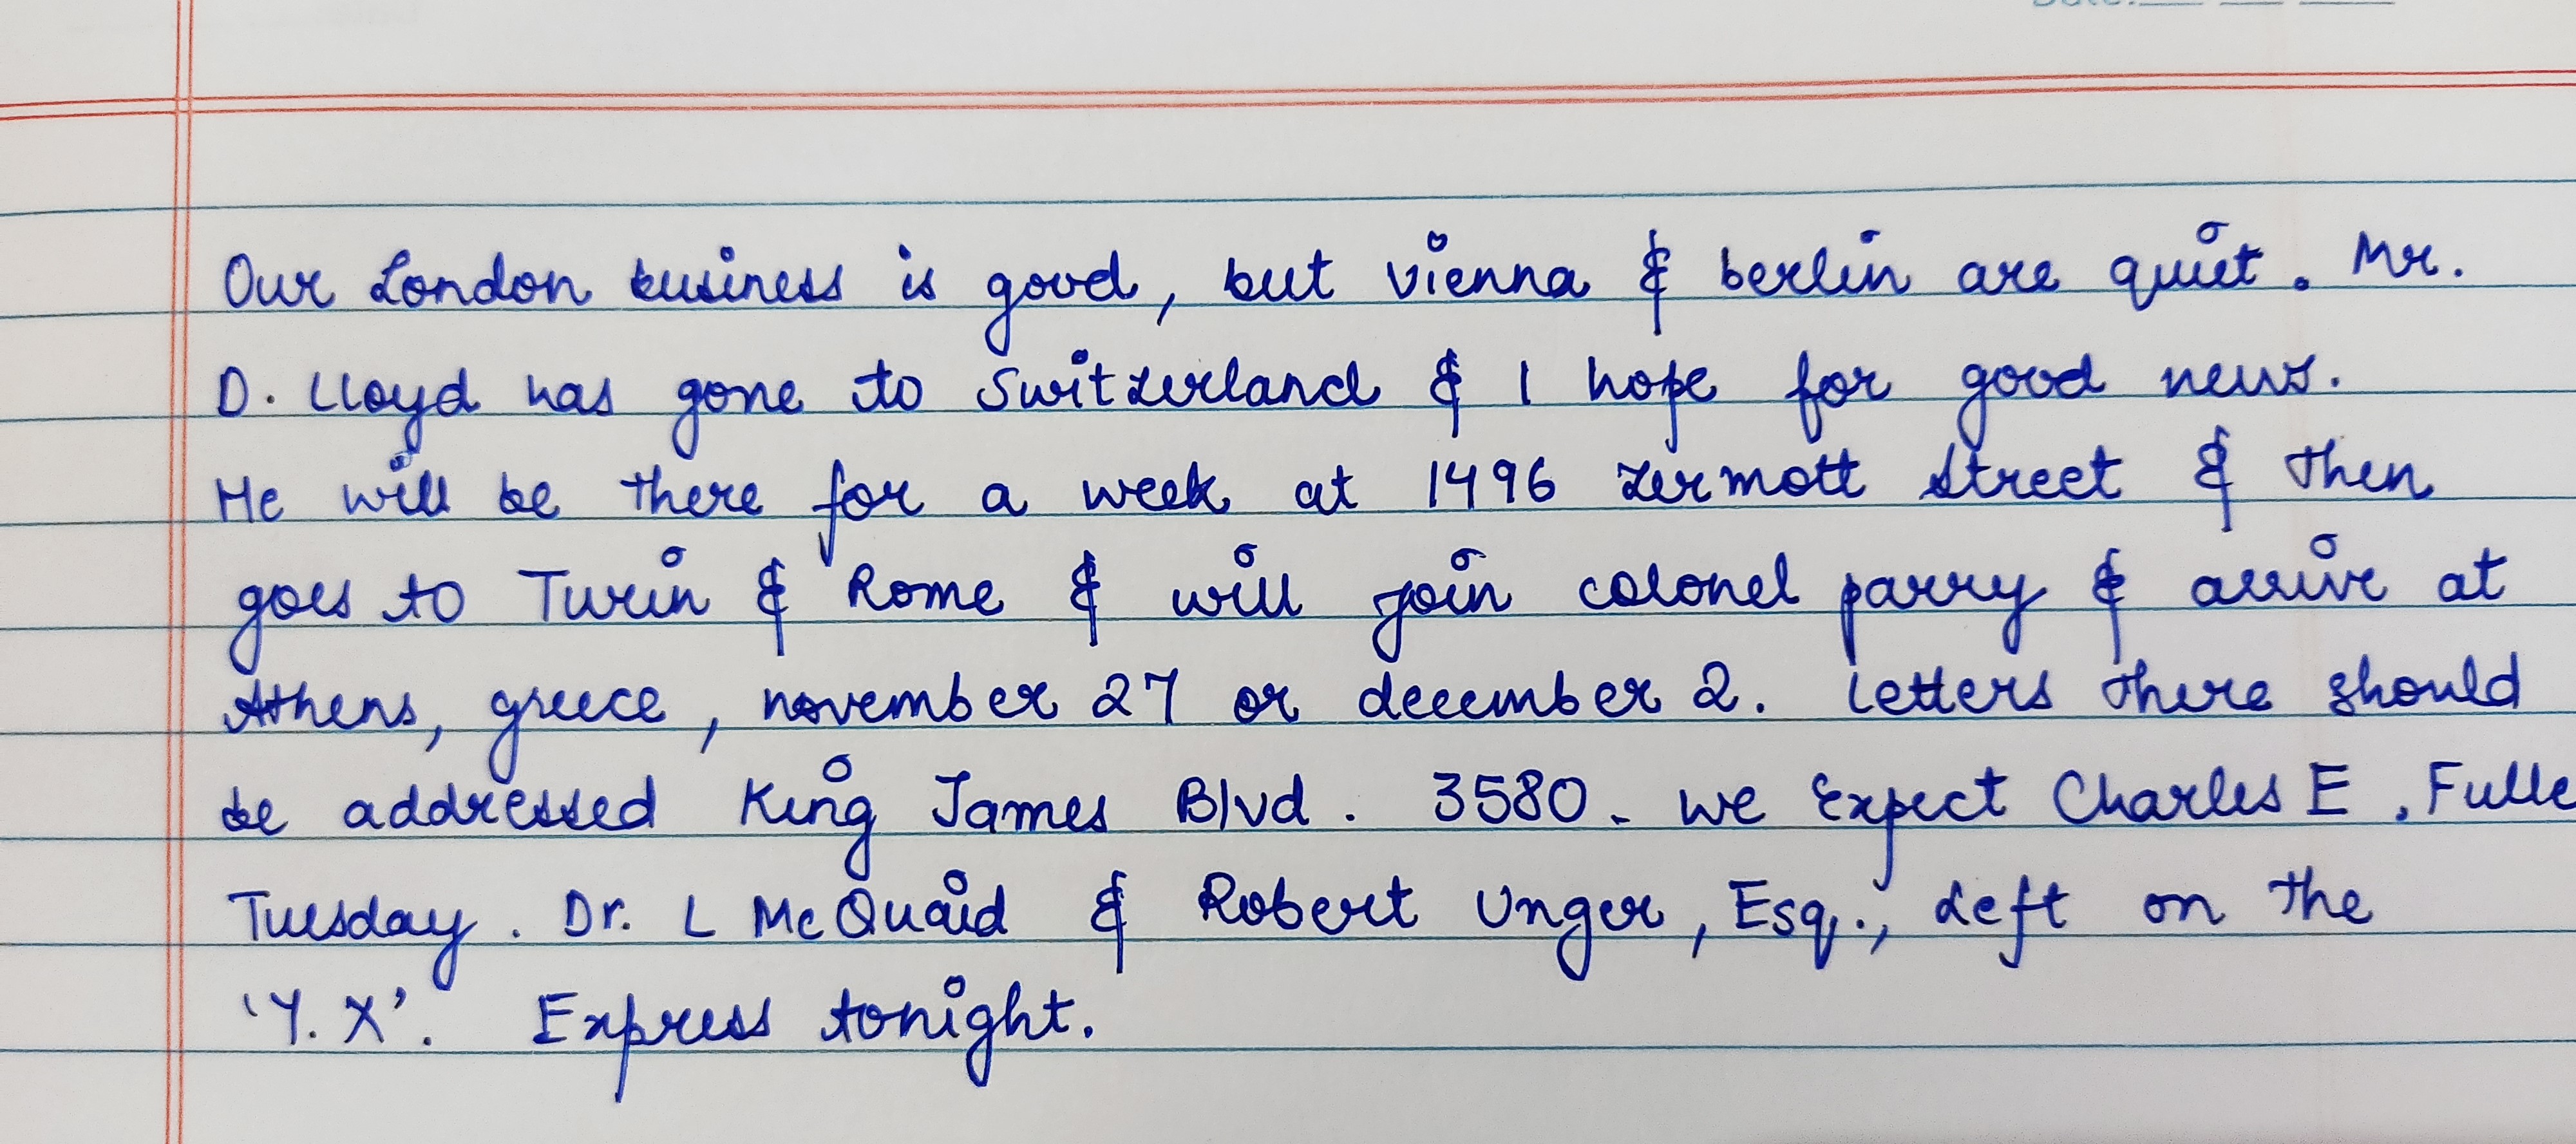 Date:
Our London business is good, but vienna & berlin are quiet. Mr.
D. Lloyd has gone to Switzerland & I hope for good news.
He will be there for a week at 1496 zermott Street & then
goes to Turin & Rome & will join colonel parry & arrive at
Athens, greece, november 27 or december 2. letters there should
be addressed King James Blvd. 3580. we expect Charles E. Fulle
Tuesday. Dr. L McQuaid & Robert Unger, Esq., left on the
'Y. X'. Express tonight.